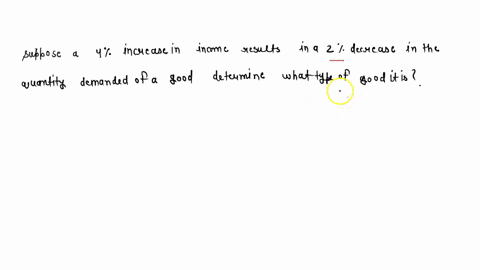 suppose a 4% increase in income results in a 2% decrease in the
quantity demanded of a good determine what type of good it is?